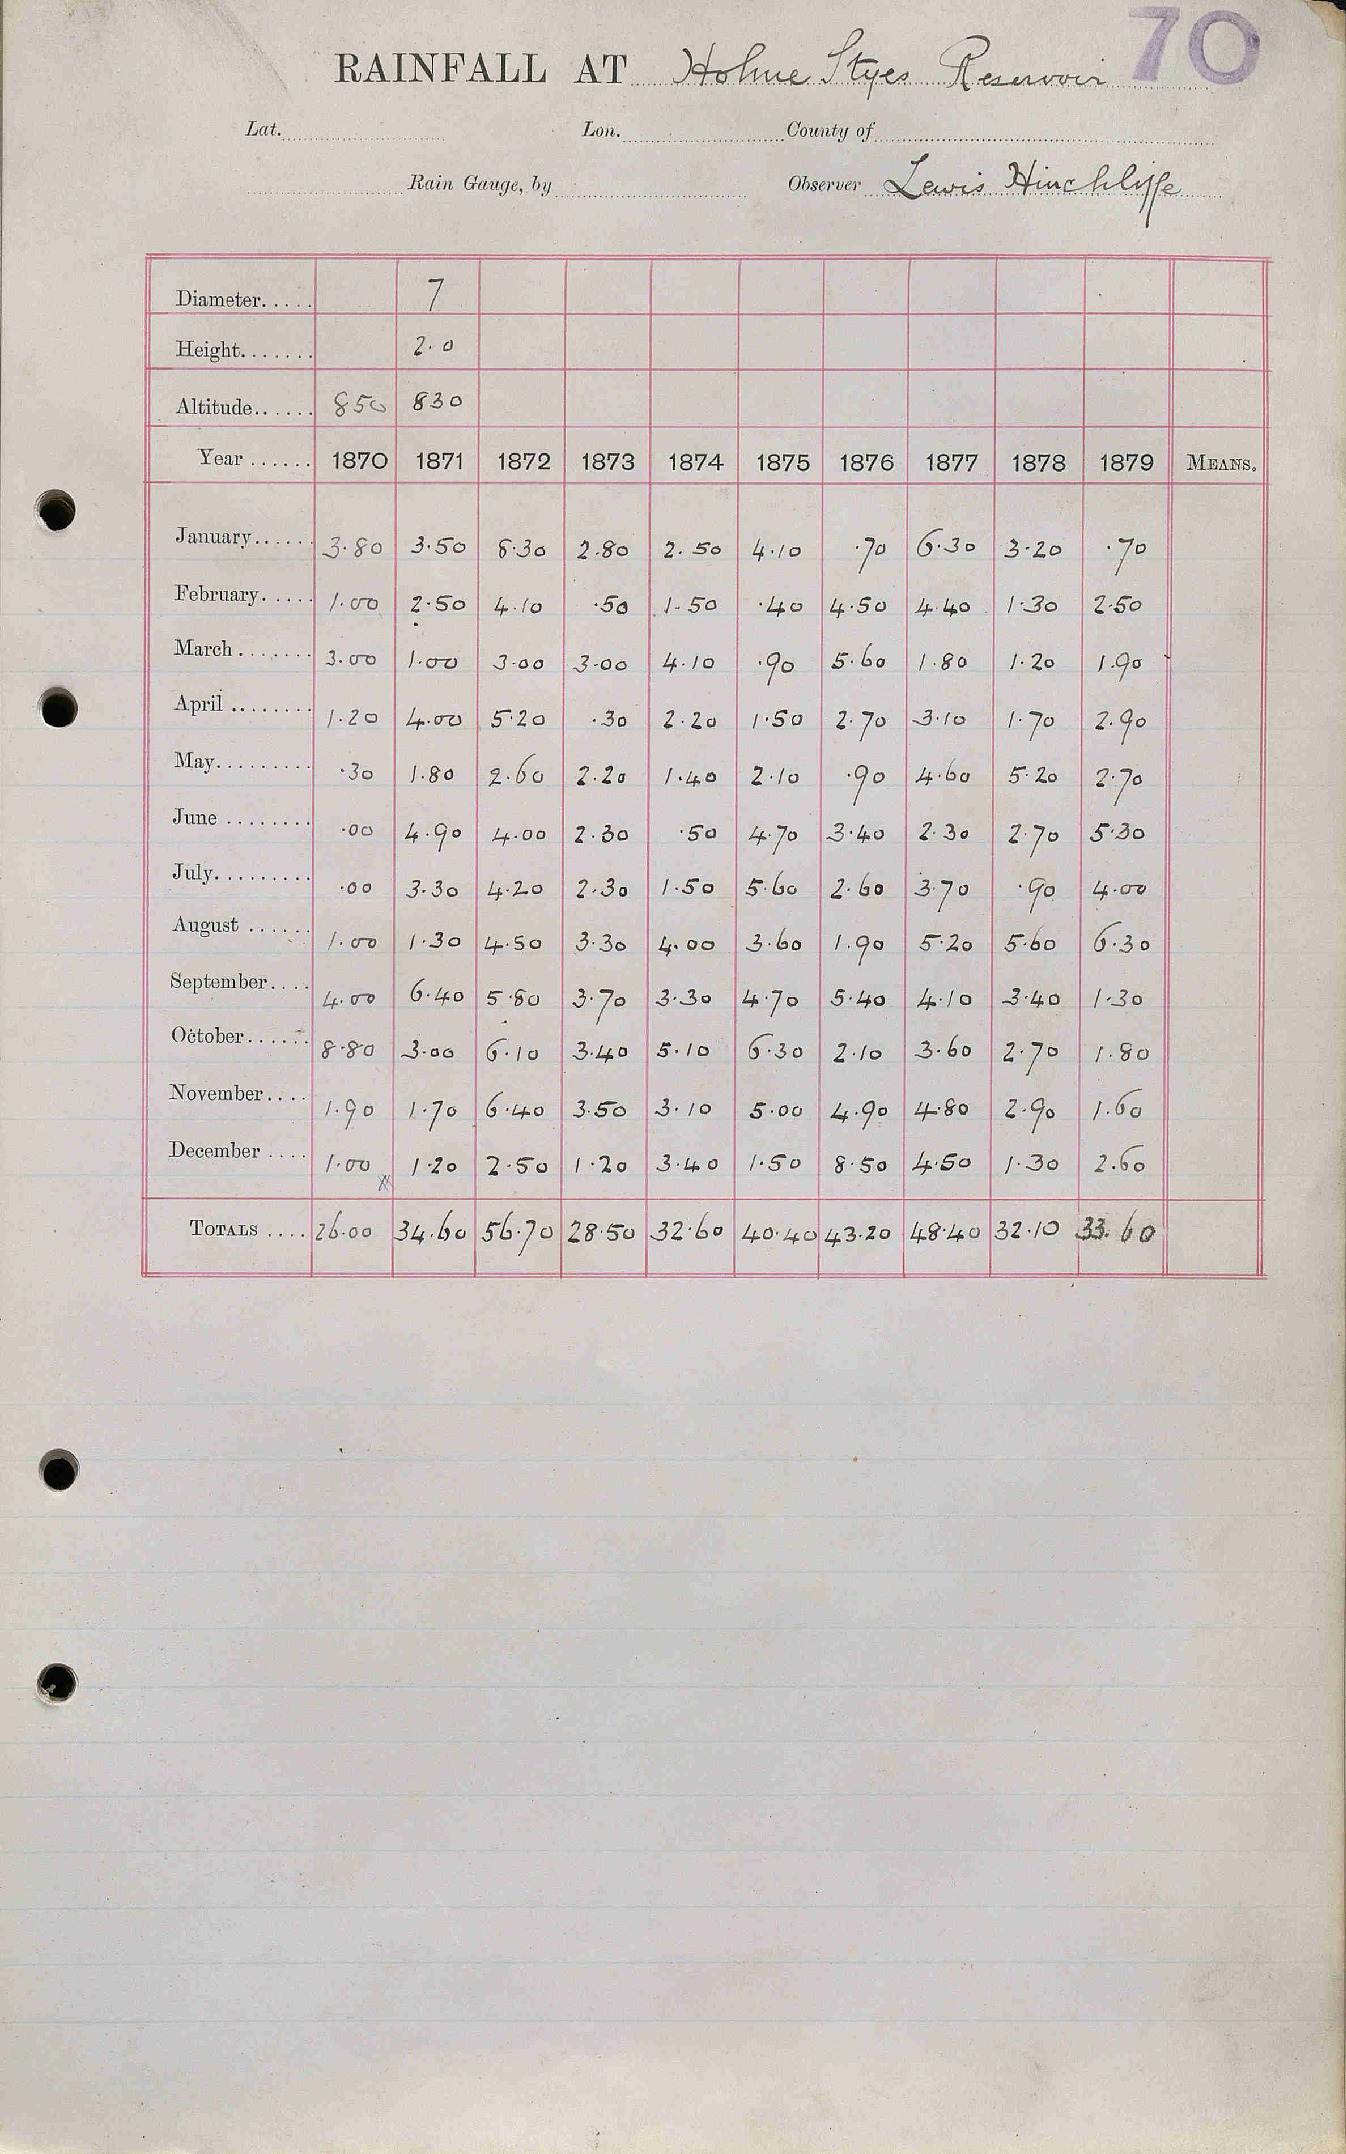 70
RAINFALL AT Holme Styes Reservoir
Lat. Lon. County of
Rain Gauge, by Observer Lewis Hinchliffe
Diameter..... 7
Height....... 2.0
Altitude...... 850 830
Year ...... 1870 1871 1872 1873 1874 1875 1876 1877 1878 1879 MEANS.
January...... 3.80 3.50 8.30 2.80 2.50 4.10 .70 6.30 3.20 .70
February..... 1.00 2.50 4.10 .50 1.50 .40 4.50 4.40 1.30 2.50
March ....... 3.00 1.00 3.00 3.00 4.10 .90 5.60 1.80 1.20 1.90
April ........ 1.20 4.00 5.20 .30 2.20 1.50 2.70 3.10 1.70 2.90
May......... .30 1.80 2.60 2.20 1.40 2.10 .90 4.60 5.20 2.70
June ........ .00 4.90 4.00 2.30 .50 4.70 3.40 2.30 2.70 5.30
July......... .00 3.30 4.20 2.30 1.50 5.60 2.60 3.70 .90 4.00
August ...... 1.00 1.30 4.50 3.30 4.00 3.60 1.90 5.20 5.60 6.30
September.... 4.00 6.40 5.80 3.70 3.30 4.70 5.40 4.10 3.40 1.30
October...... 8.80 3.00 6.10 3.40 5.10 6.30 2.10 3.60 2.70 1.80
November.... 1.90 1.70 6.40 3.50 3.10 5.00 4.90 4.80 2.90 1.60
December .... 1.00 1.20 2.50 1.20 3.40 1.50 8.50 4.50 1.30 2.60
TOTALS .... 26.00 34.60 56.70 28.50 32.60 40.40 43.20 48.40 32.10 33.60